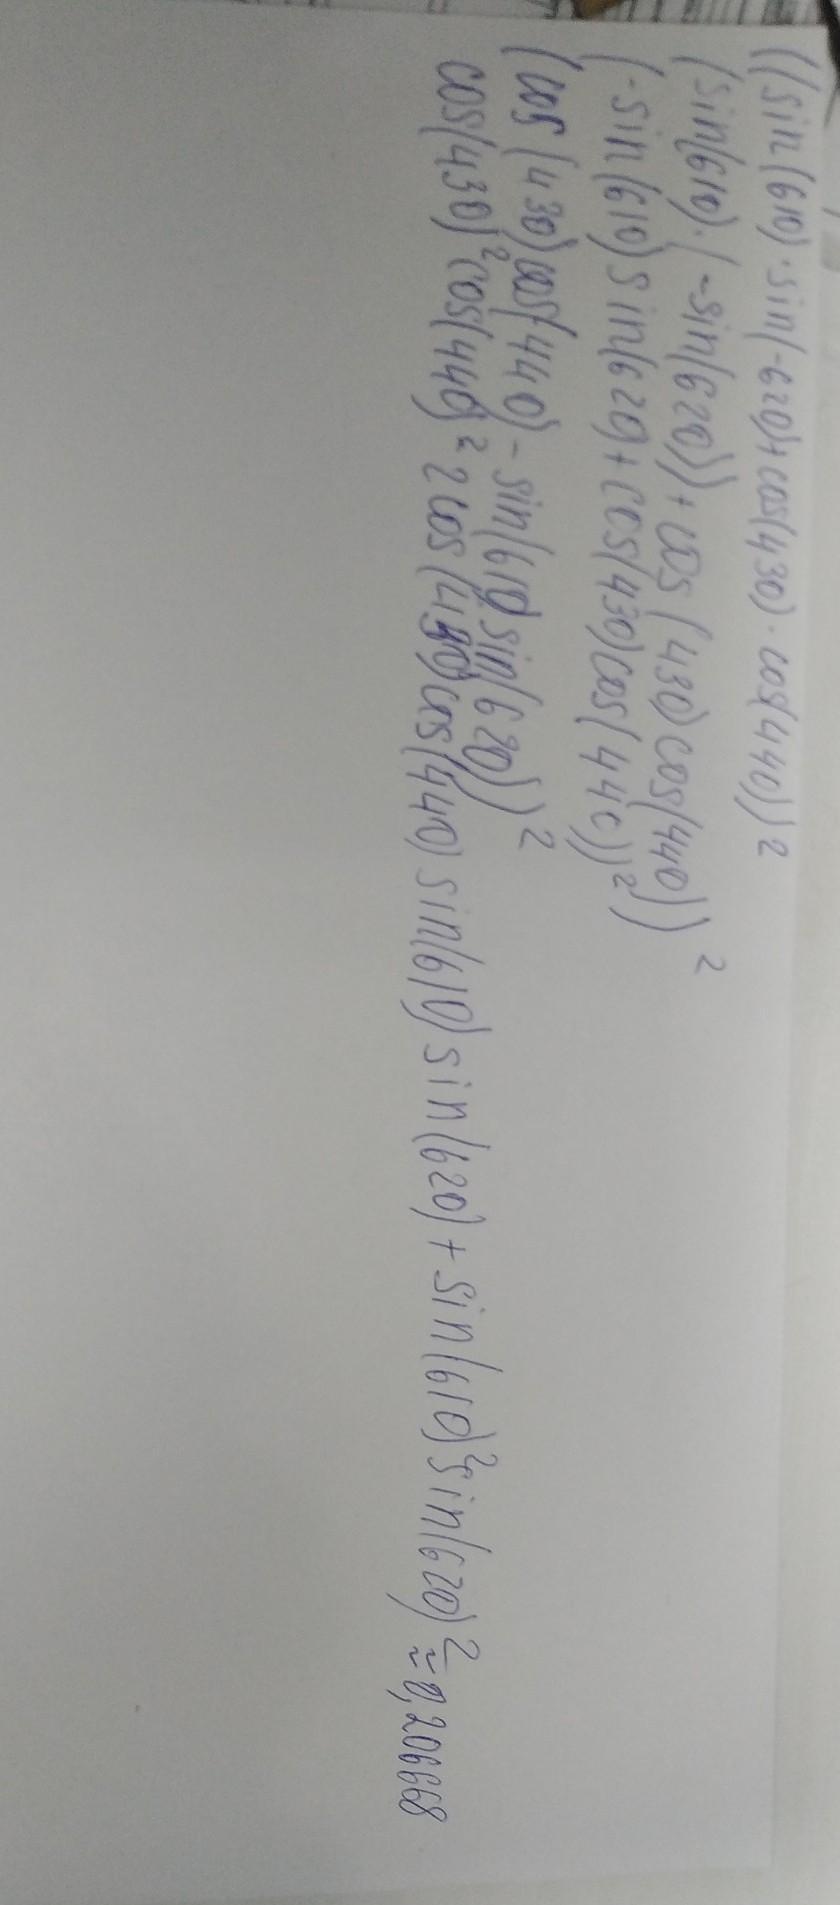 ((sin(610)·sin(-620)+cos(430)·cos(440))2
(sin(610)·(-sin(620))+cos(430)cos(440))2
(-sin(610)sin(620)+cos(430)cos(440))2))
(cos(430)cos(440)-sin(610)sin(620))2
cos(430)2cos(440)2 2cos(430)cos(440)sin(610)sin(620)+sin(610)2sin(620)2≈0,206668